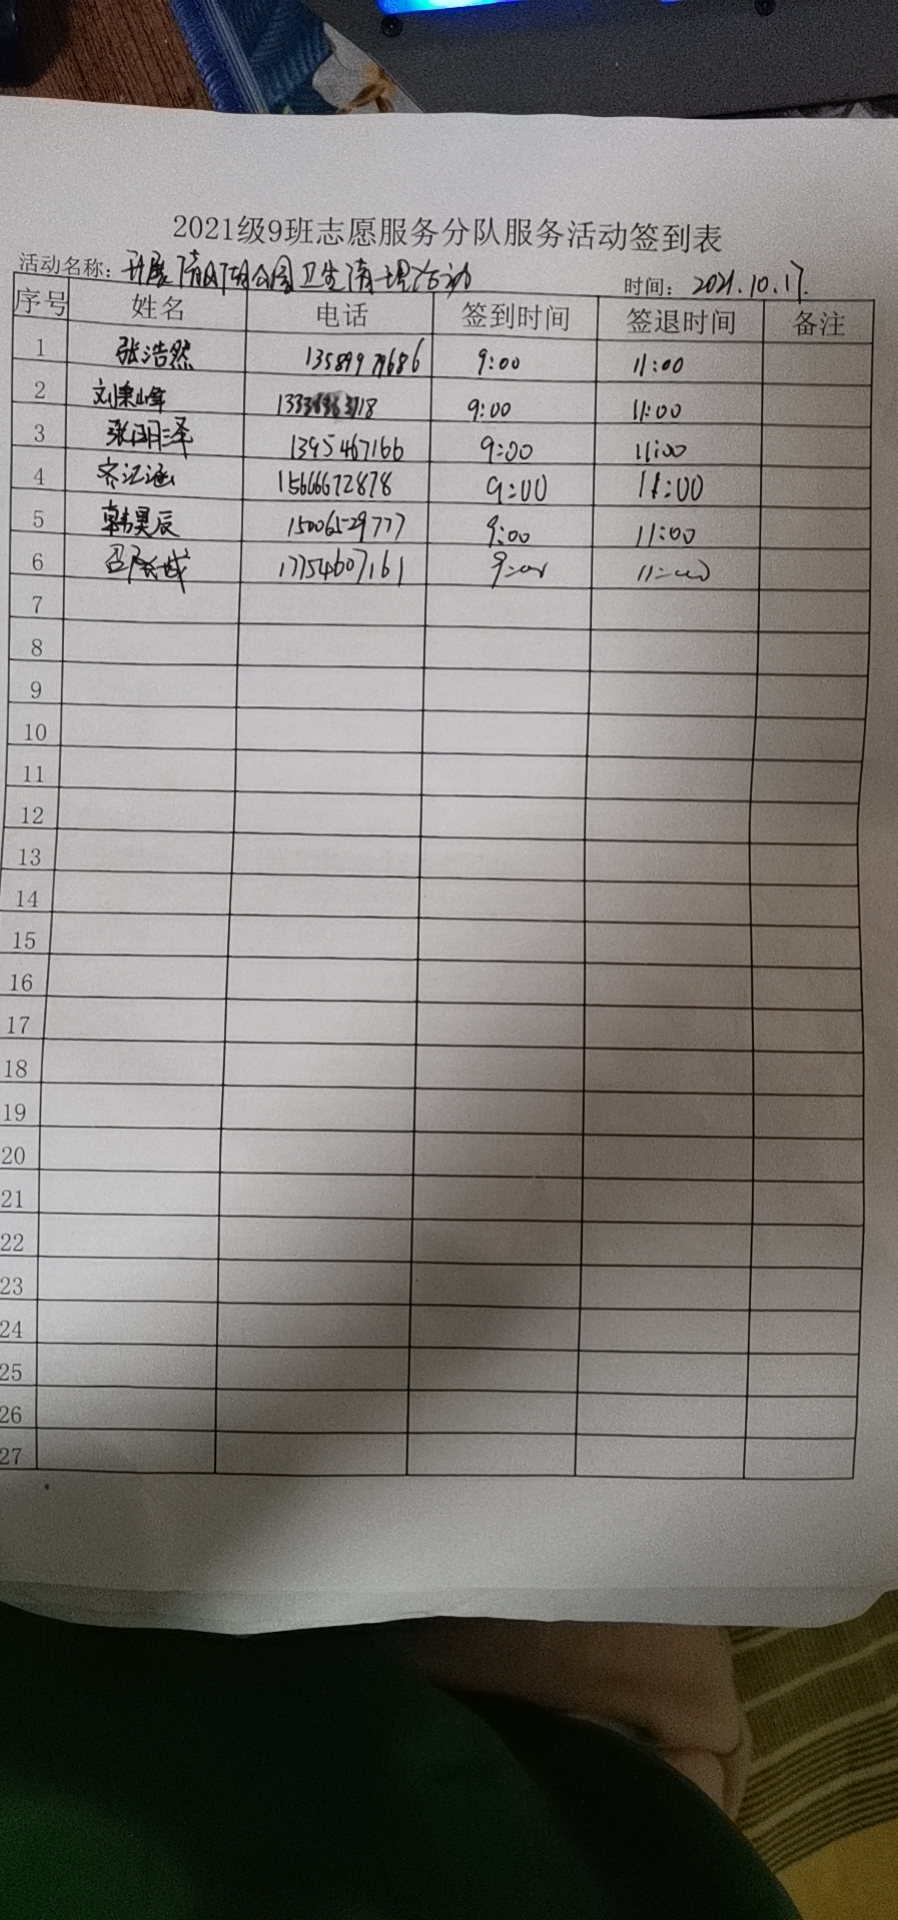 2021级9班志愿服务分队服务活动签到表
活动名称：开展清风湖公园卫生清理活动 时间：2021.10.17.
序号 姓名 电话 签到时间 签退时间 备注
1 张浩然 13589979686 9:00 11:00
2 刘秉峰 9:00 11:00
3 张明泽 1395467166 9:00 11:00
4 齐汇涵 15666672878 9:00 11:00
5 韩昊辰 15006529777 9:00 11:00
6 17754607161 9:00 11:00
7
8
9
10
11
12
13
14
15
16
17
18
19
20
21
22
23
24
25
26
27